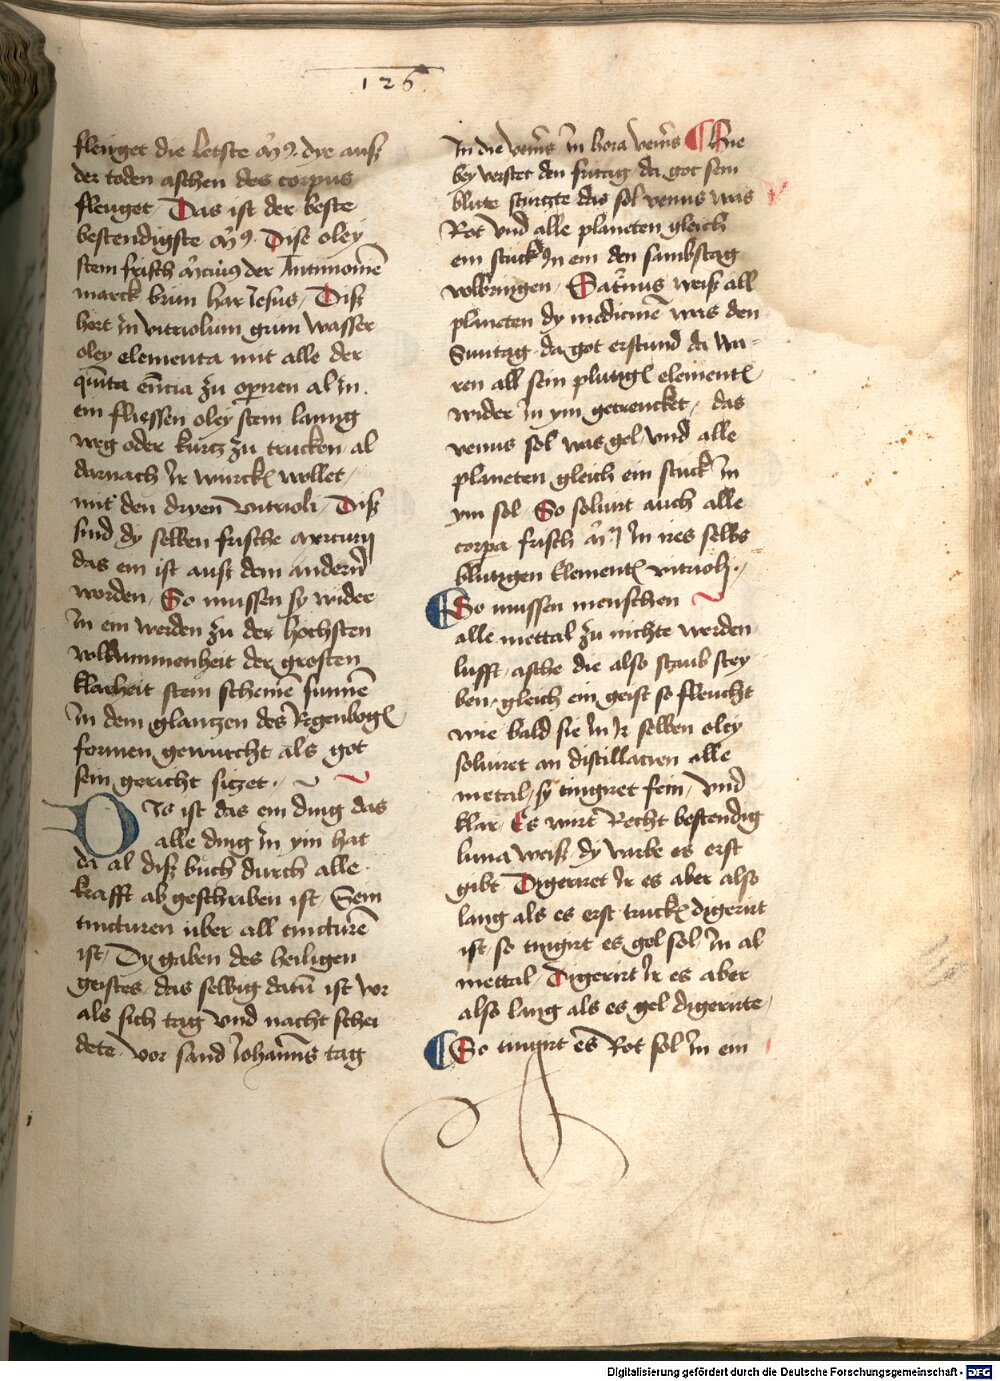 126
fleuget die letste dye auß
der toden aschen des corpus
fleuget Das ist der beste
bestendigste Dise oley
stein frisch der Antimonie
marck brun har Jesus / Diß
hort in vitriolum grun wasser
oley elementa mit alle der
quita zu operiren al in
ein fliessen oley stein lanng
weg oder kurtz zu trucken al
darnach ir wurck wollet /
mit den dryen vitrioli / Diß
sind dy selben frische
das ein ist auß dem andern
worden / So mussen sy wider
in ein werden zu der hochsten
volkummenheit der grosten
klarheit stein scheine sunne
in dem glantzen des Regenbog
formen gewurcht als got
sein gericht sitzet
Dis ist das ein ding das
alle ding in ym hat
da al diß buch durch alle
krafft ab geschriben ist / Sein
tincturen uber all tincture
ist / Dy gaben des heiligen
geistes das selbig datu ist vor
als sich tag und nacht schei
dete vor sand Johanns tag
In die in hora
bey den fritag da got sein
blute sturtzte das sol venus was
Rot und alle planeten gleich
ein stuck in ein den sambstag
volbringen / Saturnus weiß all
planeten dy medicine was den
Suntag da got erstund da wa-
ren all sein plutig element
wider in ym getrencket / das
venus sol was gel / und alle
planeten gleich ein stuck in
ym sol So soluirt auch alle
corpa frisch in ires selbs
blutigen Element vitrioli
So mussen menschen
alle mettal zu nichte werden
lufft / asche die also staub stey
ben / gleich ein geist so fleucht
wie bald sie in ir selben oley
soluiret an distillacien alle
metal / sy tingiret fein / und
klar / Es wirt Recht bestendig
luna weiß / dy varbe es erst
gibt Digeriret ir es aber also
lang als es erst truck digerirt
ist / so tingirt es gel sol in al
mettal Digerirt ir es aber
also lang als es gel digerirte /
So tingirt es Rot sol in ein
Digitalisierung gefördert durch die Deutsche Forschungsgemeinschaft - DFG